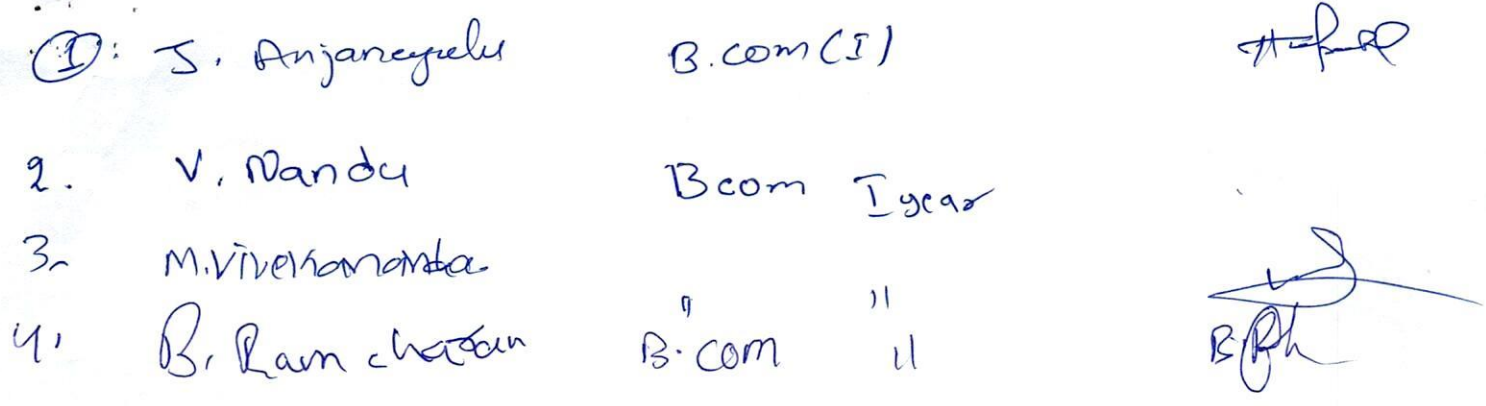 1: J. Anjaneyulu B.com (I)
2. V. Nandu Bcom I year
3. M. Vivekananda " "
4. B. Ram charan B.com "